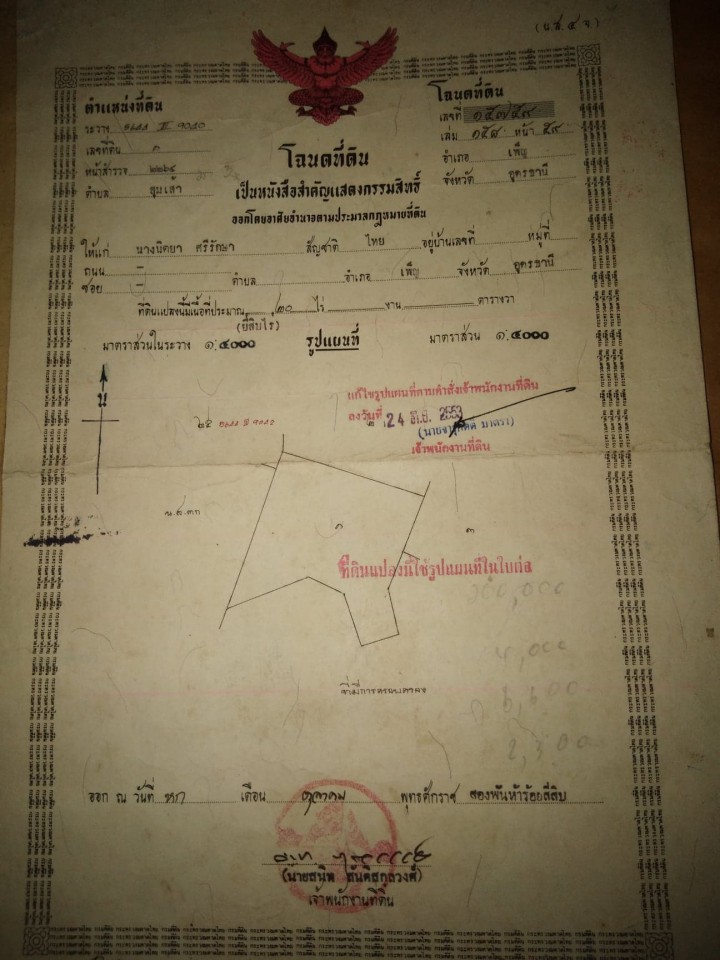 (น.ส. ๔ จ)
ตำแหน่งที่ดิน
ระวาง
เลขที่ดิน ๑
หน้าสำรวจ ๒๒๖๔
ตำบล สุมเส้า
โฉนดที่ดิน
เลขที่ ๑๕๗๕๙
เล่ม ๑๕๘ หน้า ๕๙
อำเภอ เพ็ญ
จังหวัด อุดรธานี
โฉนดที่ดิน
เป็นหนังสือสำคัญแสดงกรรมสิทธิ์
ออกโดยอาศัยอำนาจตามประมวลกฎหมายที่ดิน
ให้แก่ นางนิตยา ศรีรักษา สัญชาติ ไทย อยู่บ้านเลขที่ หมู่ที่
ถนน –
ซอย – ตำบล อำเภอ เพ็ญ จังหวัด อุดรธานี
ที่ดินแปลงนี้มีเนื้อที่ประมาณ ๒๐ ไร่ งาน ตารางวา
(ยี่สิบไร่)
มาตราส่วนในระวาง ๑:๕๐๐๐ รูปแผนที่ มาตราส่วน ๑:๕๐๐๐
น
แก้ไขรูปแผนที่ตามคำสั่งเจ้าพนักงานที่ดิน
ลงวันที่ 24 มิ.ย. 2553
เจ้าพนักงานที่ดิน
น.ส.๓ก
๑
๓
ที่ดินแปลงนี้ใช้รูปแผนที่ในใบต่อ
4,000
6,600
2,300
ออก ณ วันที่ หก เดือน ตุลาคม พุทธศักราช สองพันห้าร้อยสี่สิบ
(นายสนิท สันติสกุลวงศ์)
เจ้าพนักงานที่ดิน